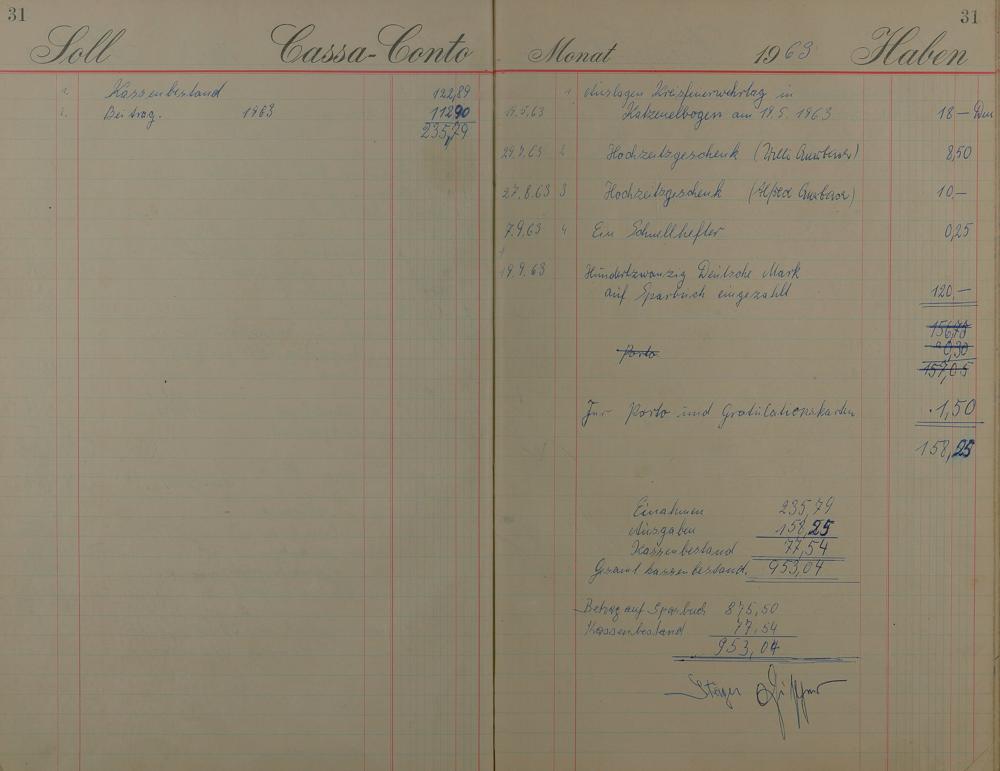 31
Soll Cassa-Conto
1. Kassenbestand 122,89
2. Beitrag. 1963 112,90
235,79
31
Monat 1963 Haben
1 Auslagen Kreisfeuerwehrtag in
19.5.63 Katzenelbogen am 19.5.1963 18 —
2 Hochzeitsgeschenk (Willi 8,50
27.8.63 3 Hochzeitsgeschenk 10.—
7.9.63 4 Ein Schnellhefter 0,25
19.9.63 Hundertzwanzig Deutsche Mark
auf Sparbuch eingezahlt 120,—
156,75
Porto 0,30
157,05
Für Porto und Gratulationskarten 1,50
158,25
Einahmen 235,79
Ausgaben 158,25
Kassenbestand 77,54
Gesamt kassenbestand. 953,04
Betrag auf Sparbuch 875,50
Kassenbestand 77.54
953,04